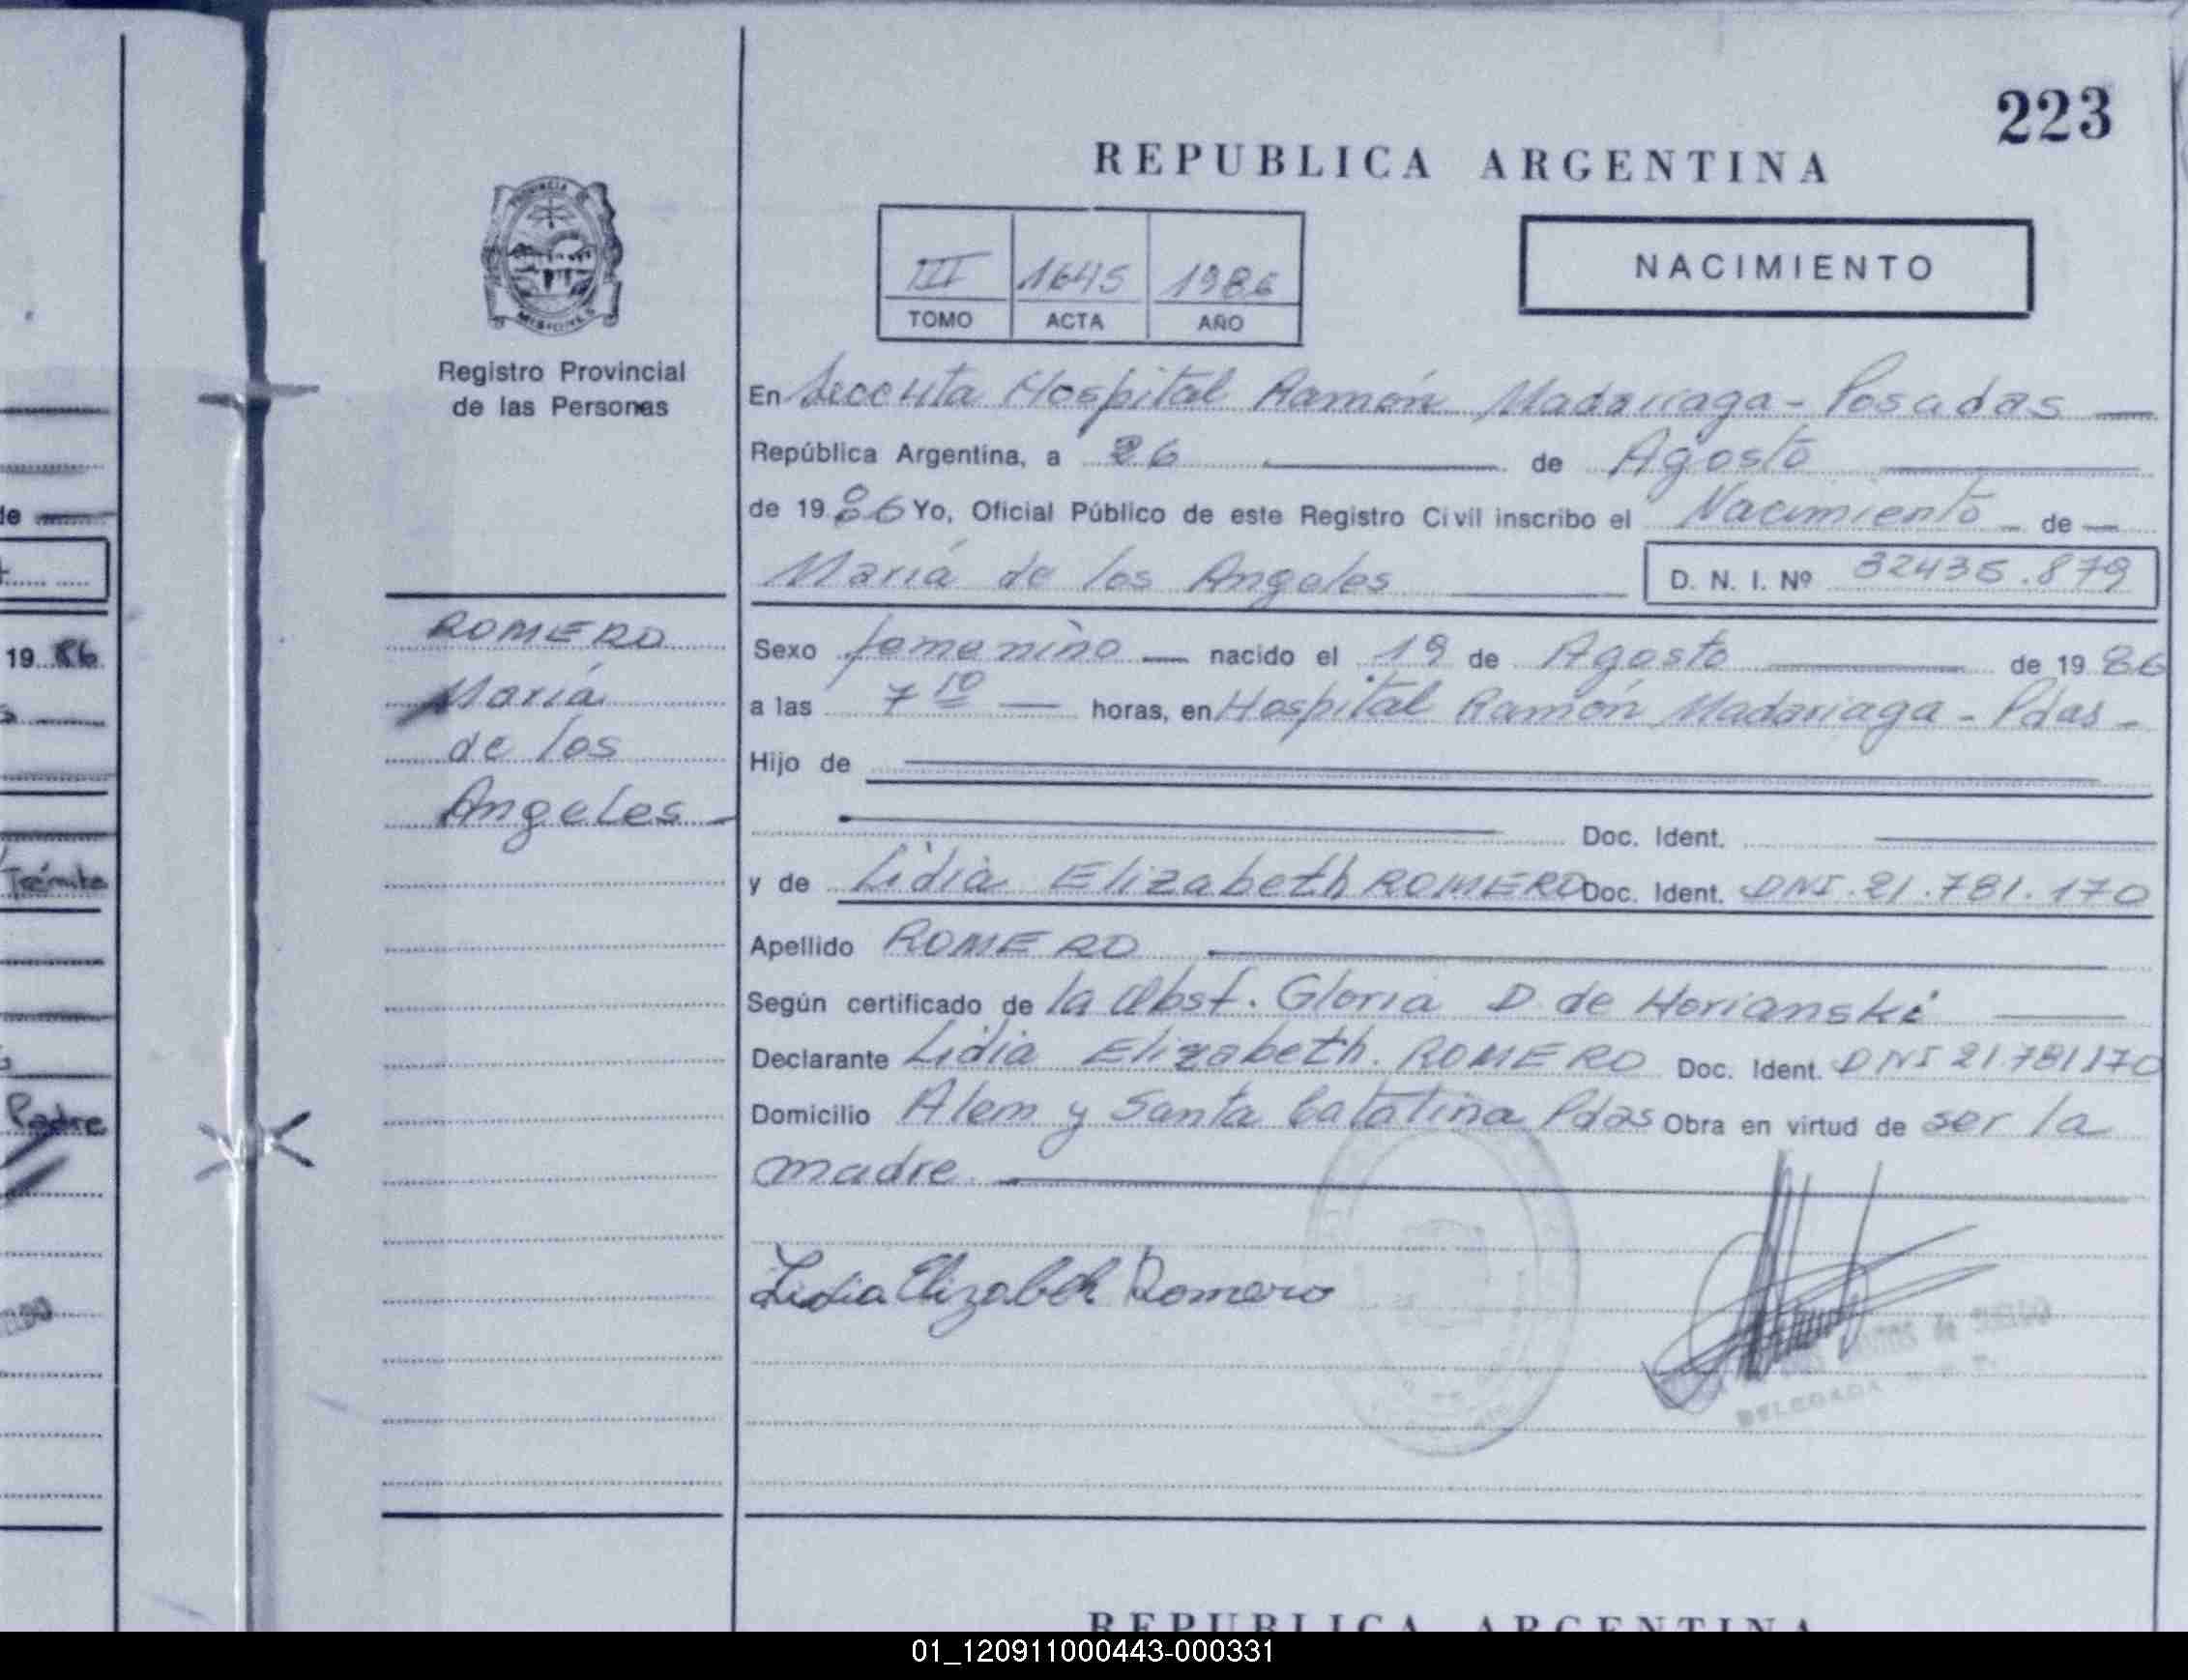 223
REPUBLICA ARGENTINA
III 1645 1986
TOMO ACTA AÑO
NACIMIENTO
PROVINCIA DE
MISIONES
Registro Provincial
de las Personas
ROMERO
María
de los
Angeles
En Hospital Ramón Madariaga - Posadas
República Argentina, a 26 de Agosto
de 1986 Yo, Oficial Público de este Registro Civil inscribo el Nacimiento de
María de los Angeles D. N. I. Nº 32435.879
Sexo femenino nacido el 19 de Agosto de 1986
a las 7 10 horas, en Hospital Ramón Madariaga - Pdas -
Hijo de
Doc. Ident.
y de Lidia Elizabeth ROMERO Doc. Ident. DNI 21.781.170
Apellido ROMERO
Según certificado de la Obst. Gloria D. de Horianski
Declarante Lidia Elizabeth ROMERO Doc. Ident. DNI 21.781170
Domicilio Alem y Santa Catalina Pdas Obra en virtud de ser la
madre
Lidia Elizabeth Romero
DELEGADA
de
19 86
Trámite
Padre
REPUBLICA ARGENTINA
01_120911000443-000331